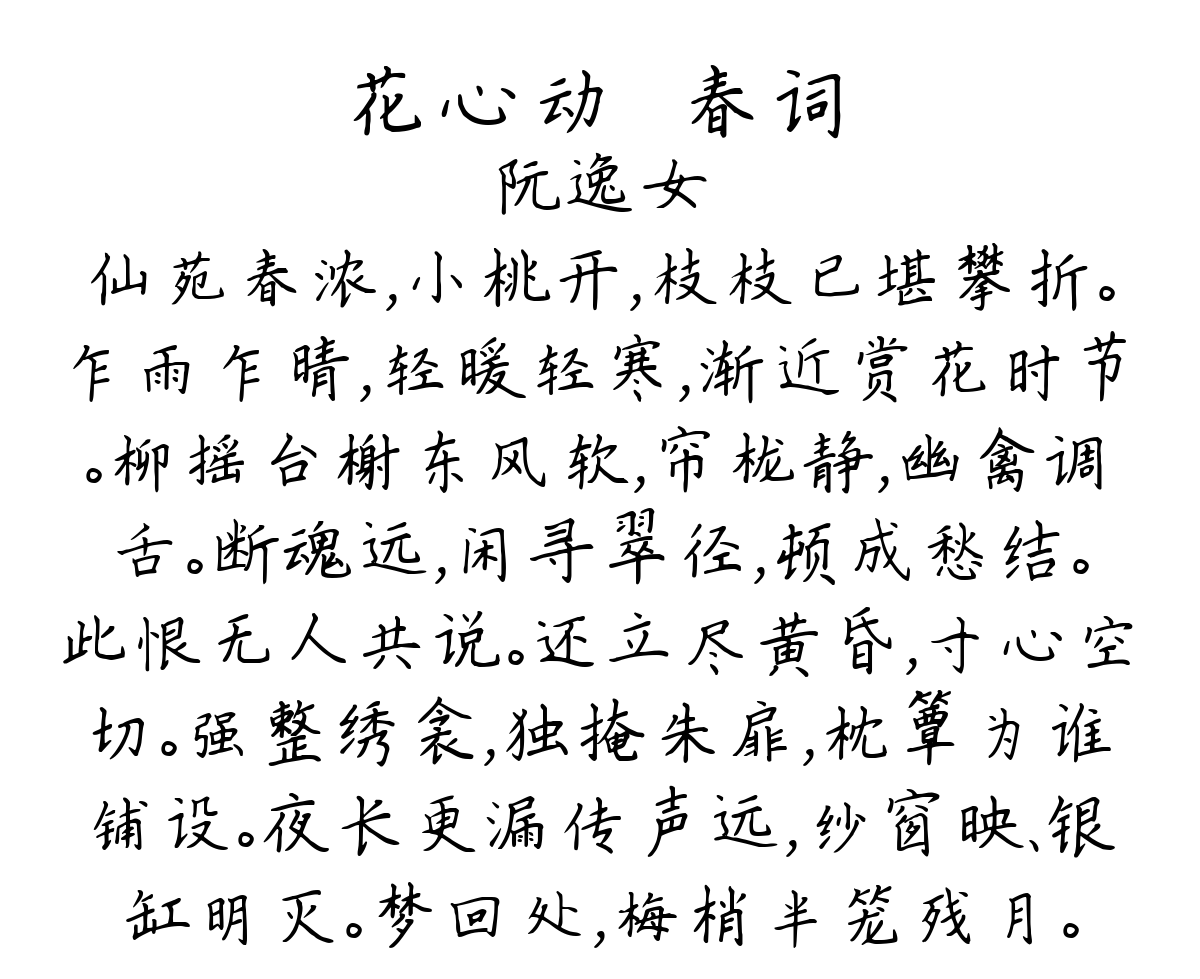 花心动 春词
阮逸女
仙苑春浓,小桃开,枝枝已堪攀折。
乍雨乍晴,轻暖轻寒,渐近赏花时节
。柳摇台榭东风软,帘栊静,幽禽调
舌。断魂远,闲寻翠径,顿成愁结。
此恨无人共说。还立尽黄昏,寸心空
切。强整绣衾,独掩朱扉,枕簟为谁
铺设。夜长更漏传声远,纱窗映、银
缸明灭。梦回处,梅梢半笼残月。